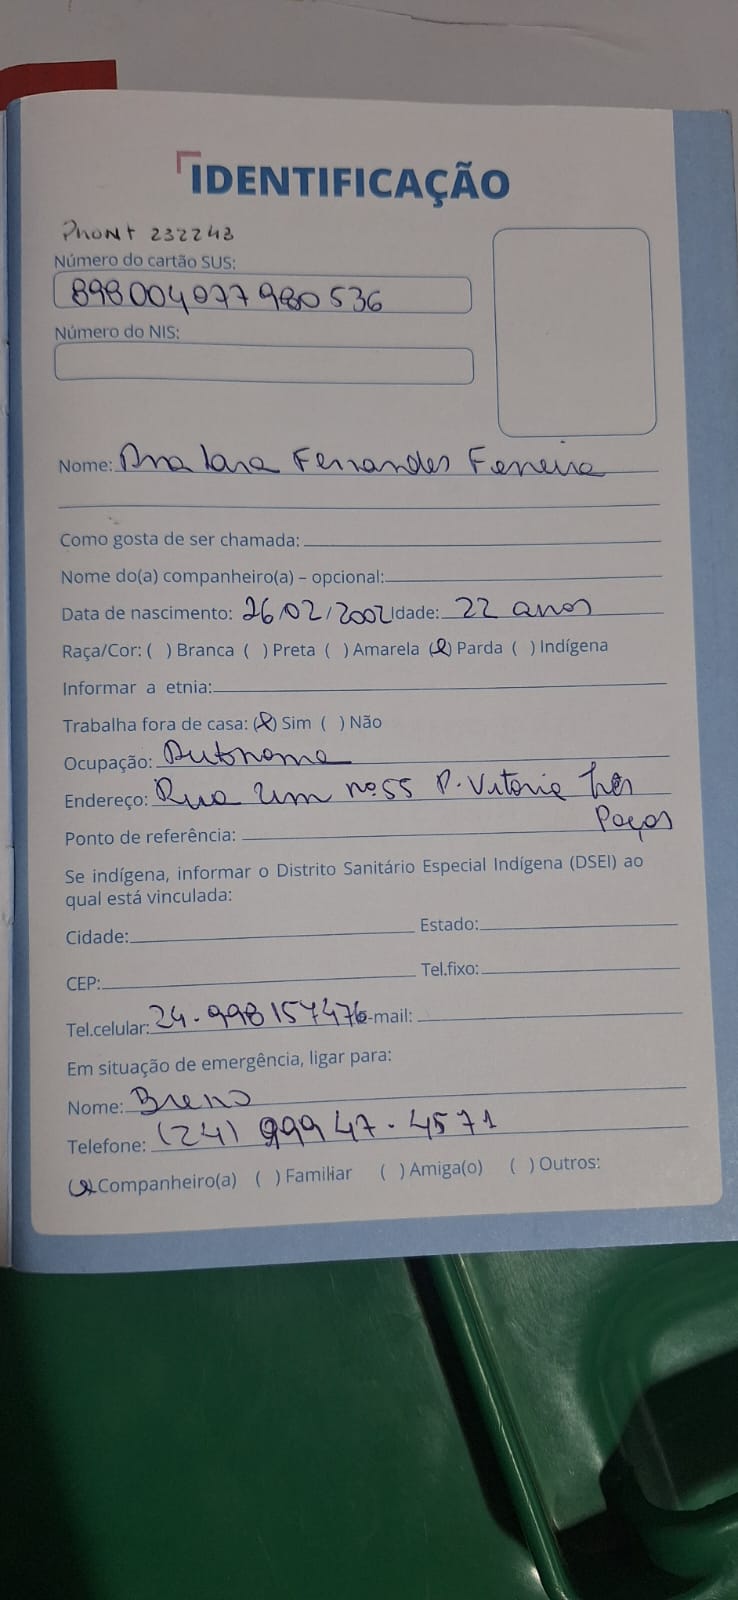 IDENTIFICAÇÃO
PRONT 232243
Número do cartão SUS:
898004077980536
Número do NIS:
Nome: Ana Iara Fernandes Ferreira
Como gosta de ser chamada:
Nome do(a) companheiro(a) – opcional:
Data de nascimento: 26/02/2002 Idade: 22 anos
Raça/Cor: ( ) Branca ( ) Preta ( ) Amarela (x) Parda ( ) Indígena
Informar a etnia:
Trabalha fora de casa: (x) Sim ( ) Não
Ocupação: Autonoma
Endereço: Rua Um nº 55 P. Vitoria três
Poços
Ponto de referência:
Se indígena, informar o Distrito Sanitário Especial Indígena (DSEI) ao
qual está vinculada:
Cidade: Estado:
CEP: Tel.fixo:
Tel.celular: 24-998157476 E-mail:
Em situação de emergência, ligar para:
Nome: Breno
Telefone: (24) 99947-4571
(x) Companheiro(a) ( ) Familiar ( ) Amiga(o) ( ) Outros: